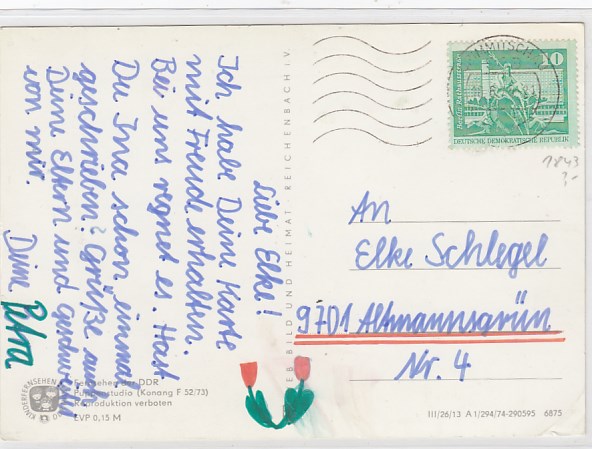 Liebe Elke!
Ich habe Deine Karte
mit Freude erhalten.
Bei uns regnet es. Hast
Du Ina schon einmal
geschrieben? Grüße auch
Deine Eltern und Geschwister
von mir.
Deine Petra
An
Elke Schlegel
9701 Altmannsgrün
Nr. 4
10
Berlin Rathausstraße
DEUTSCHE DEMOKRATISCHE REPUBLIK
1843
?-
BILD UND HEIMAT · REICHENBACH i. V.
KINDERFERNSEHEN
DDR
Fernsehen der DDR
Puppenstudio (Konang F 52/73)
Reproduktion verboten
EVP 0,15 M
III/26/13 A 1/294/74-290595 6875